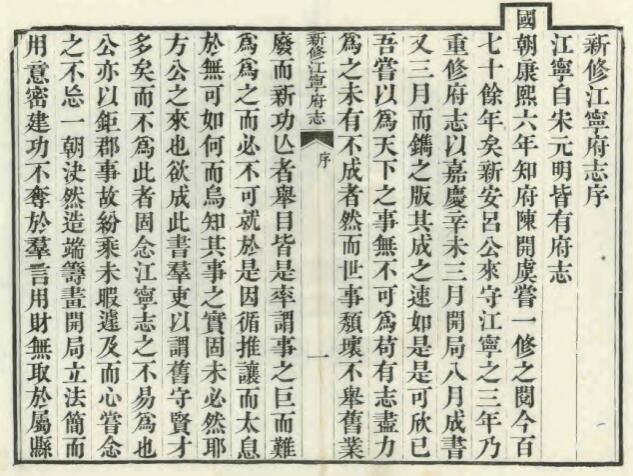 新修江寧府志序
江寧自宋元明皆有府志
國朝康熙六年知府陳開虞嘗一修之閱今百
七十餘年矣新安呂公來守江寧之三年乃
重修府志以嘉慶辛未三月開局八月成書
又三月而鐫之版其成之速如是是可欣已
吾嘗以爲天下之事無不可爲苟有志盡力
爲之未有不成者然而世事頽壞不舉舊業
新修江寧府志 序 一
廢而新功亾者舉目皆是率謂事之巨而難
爲爲之而必不可就於是因循推讓而太息
於無可如何而烏知其事之實固未必然耶
方公之來也欲成此書羣吏以謂舊守賢才
多矣而不爲此者固念江寧志之不易爲也
公亦以鉅郡事故紛乘未暇遽及而心嘗念
之不忘一朝決然造端籌畫開局立法簡而
用意密建功不奪於羣言用財無取於屬縣